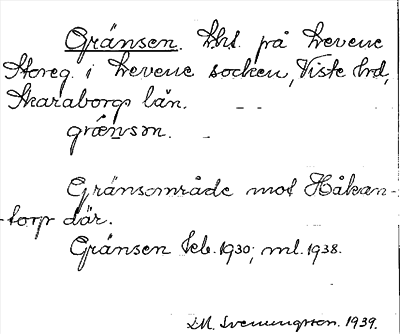 Gränsen. Lht. på Levene
Storeg. i Levene socken, Viste hrd,
Skaraborgs län.
grǽnsən.
Gränsområde mot Håkan-
torp där.
Gränsen Jeb. 1930; ml. 1938.
Svenungsson. 1939.